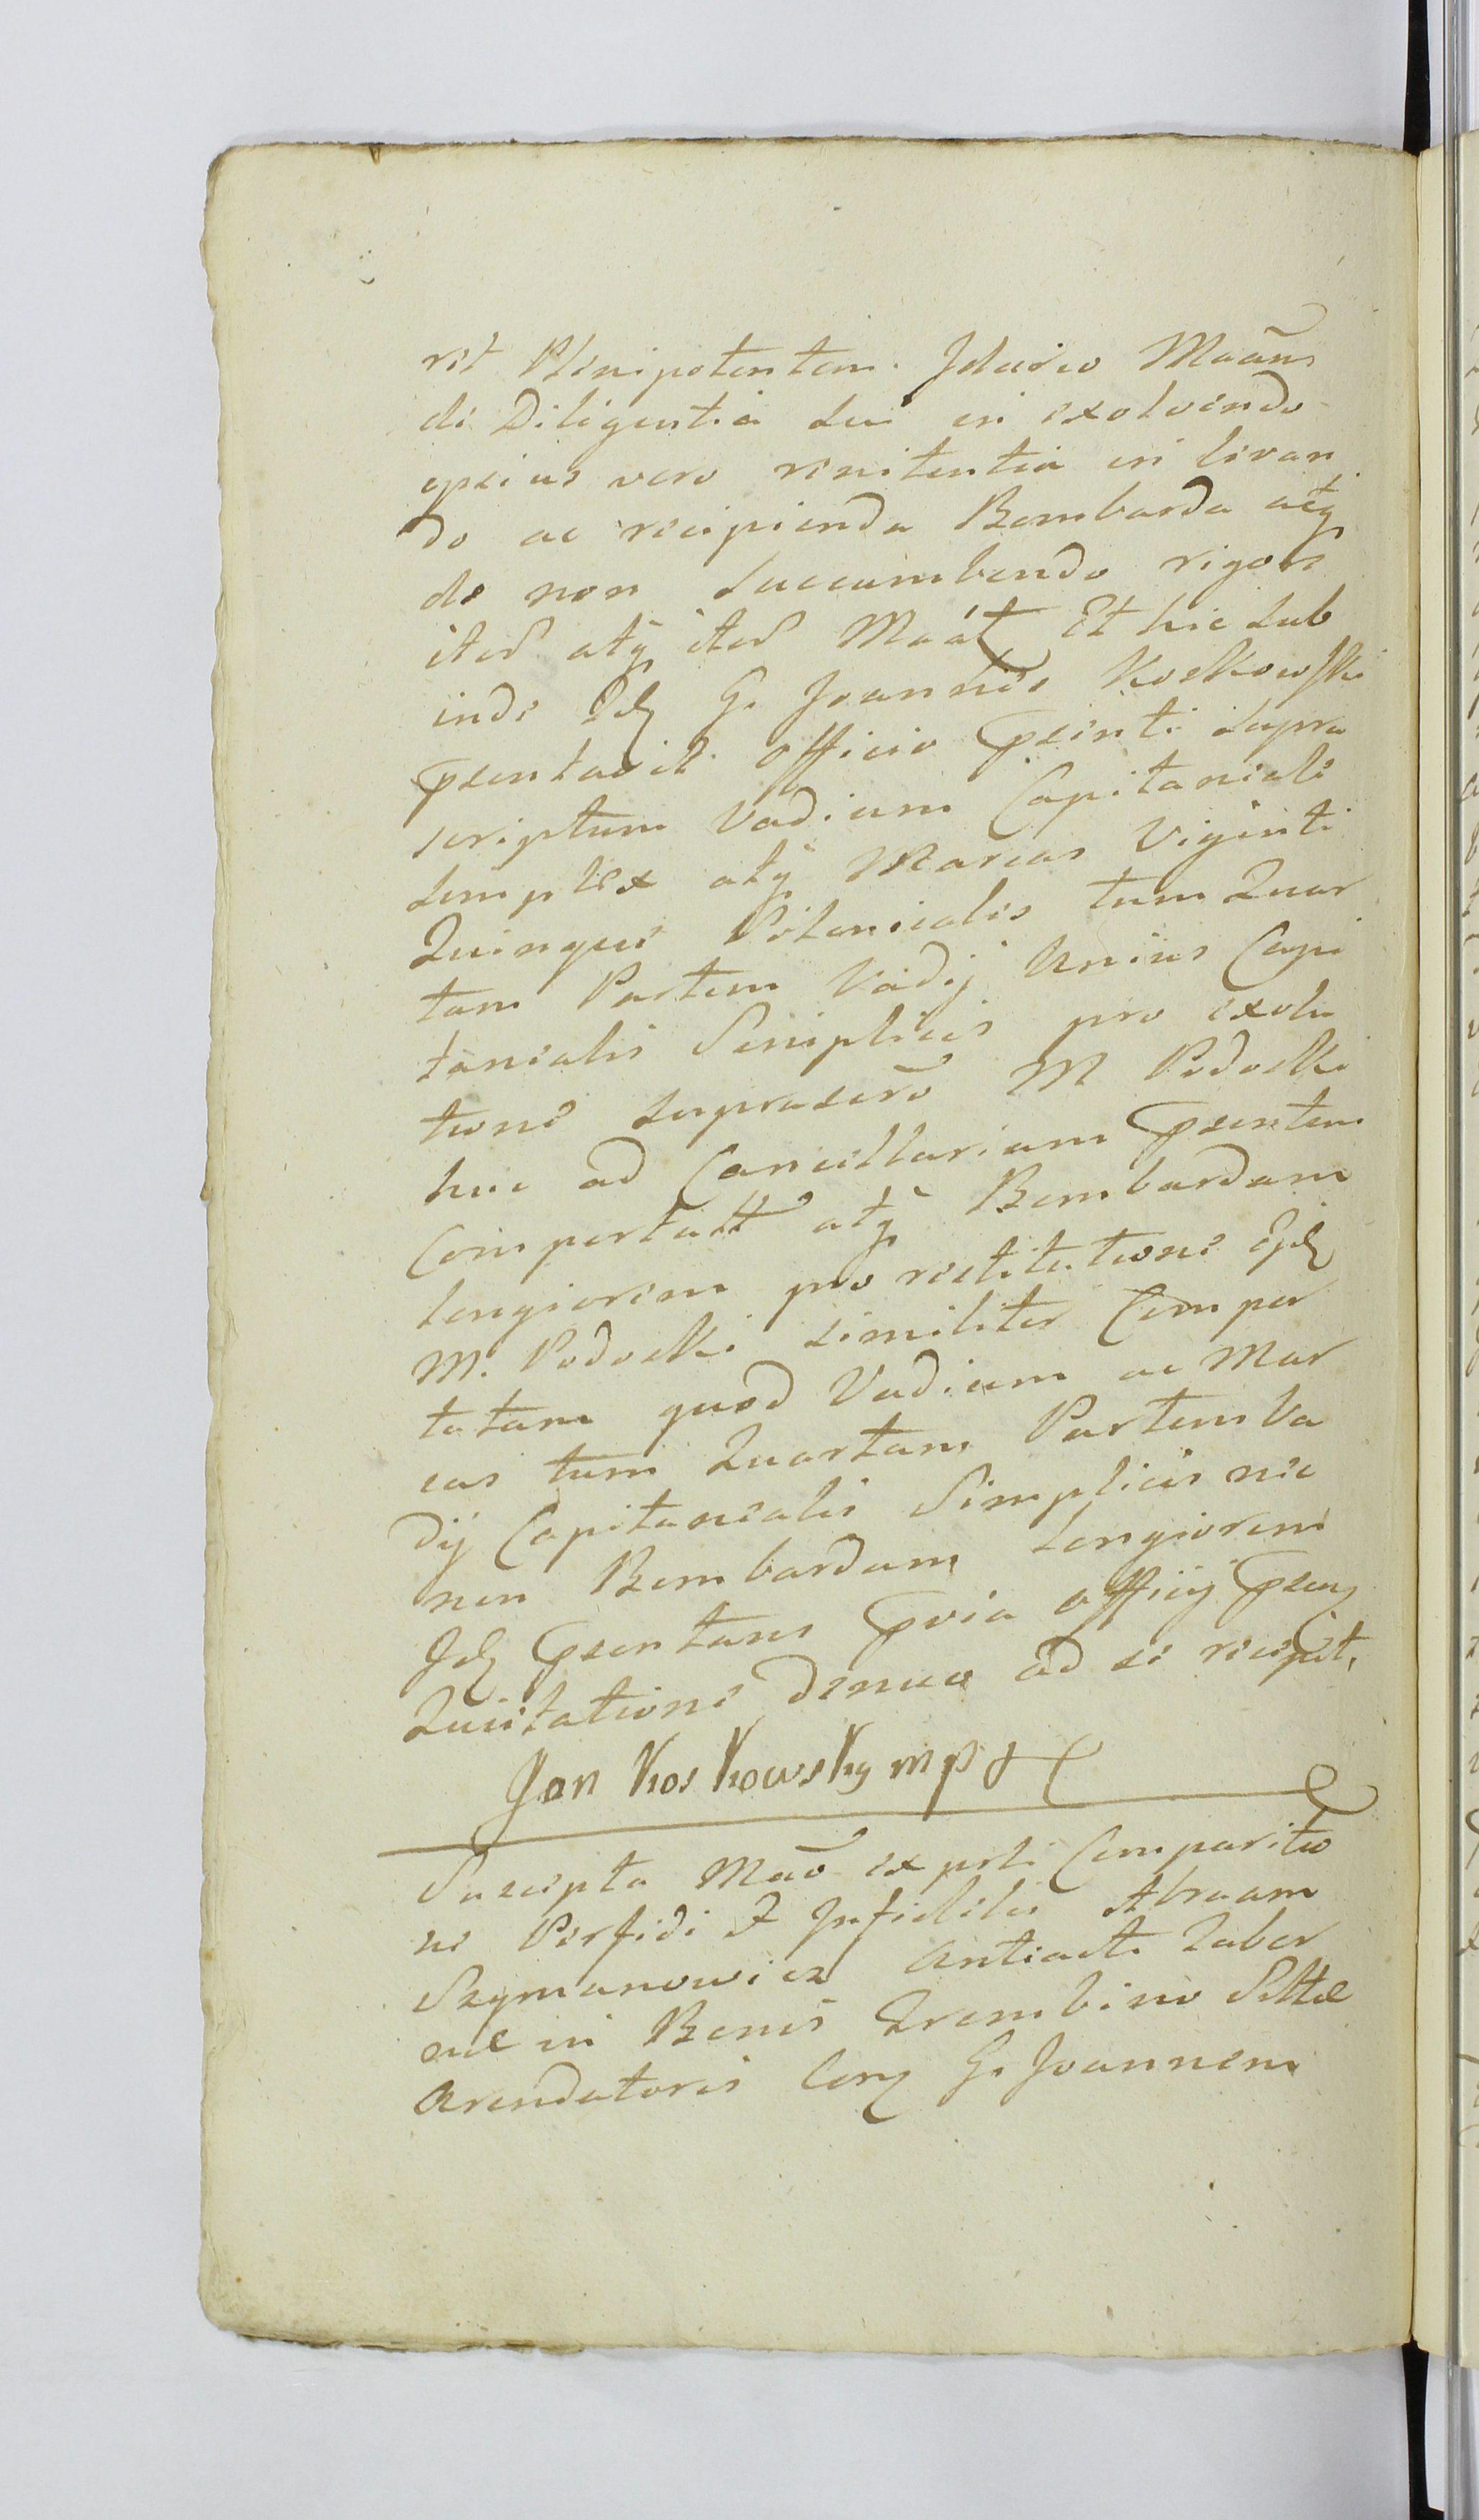 rit Plenipotentem. Idcirco Maãns
de Diligentia sui in exolvendo
ipsius vero renitentia in levan
do ac recipienda Bombarda atq
de non succumbendo rigore
ited atq ited Maãt Et hic sub
inde Idq G. Joannes Koskowski
psentavit officio psenti supra
scriptum Vadium Capitaneale
simplex atq Marcas Viginti
Quinque Polonicales tum Quar
tam Partem Vadij Unius Capi
tanealis Simplicis pro exolu
tione suprascrõ M Podoski
huc ad Cancellariam psentem
Comportatt atq Bombardam
longiorem pro restitutione Ejdq
M. Podoski similiter Compor
tatam quod Vadium ac Mar
cas tum Quartam Partem Va
dij Capitanealis Simplicis nec
non Bombardam longiorem
Idq psentans pvia officij psentq
Quietatione denuo ad se recepit,
Jan Koskowsky mp
Suscepta Maõ ex parte Comparitio
ne Perfidi & Infidelis Abraam
Szymanowicz Antiacte Taber
nae in Bonis Trembino Sittae
Arendatoris Corq G. Joannem